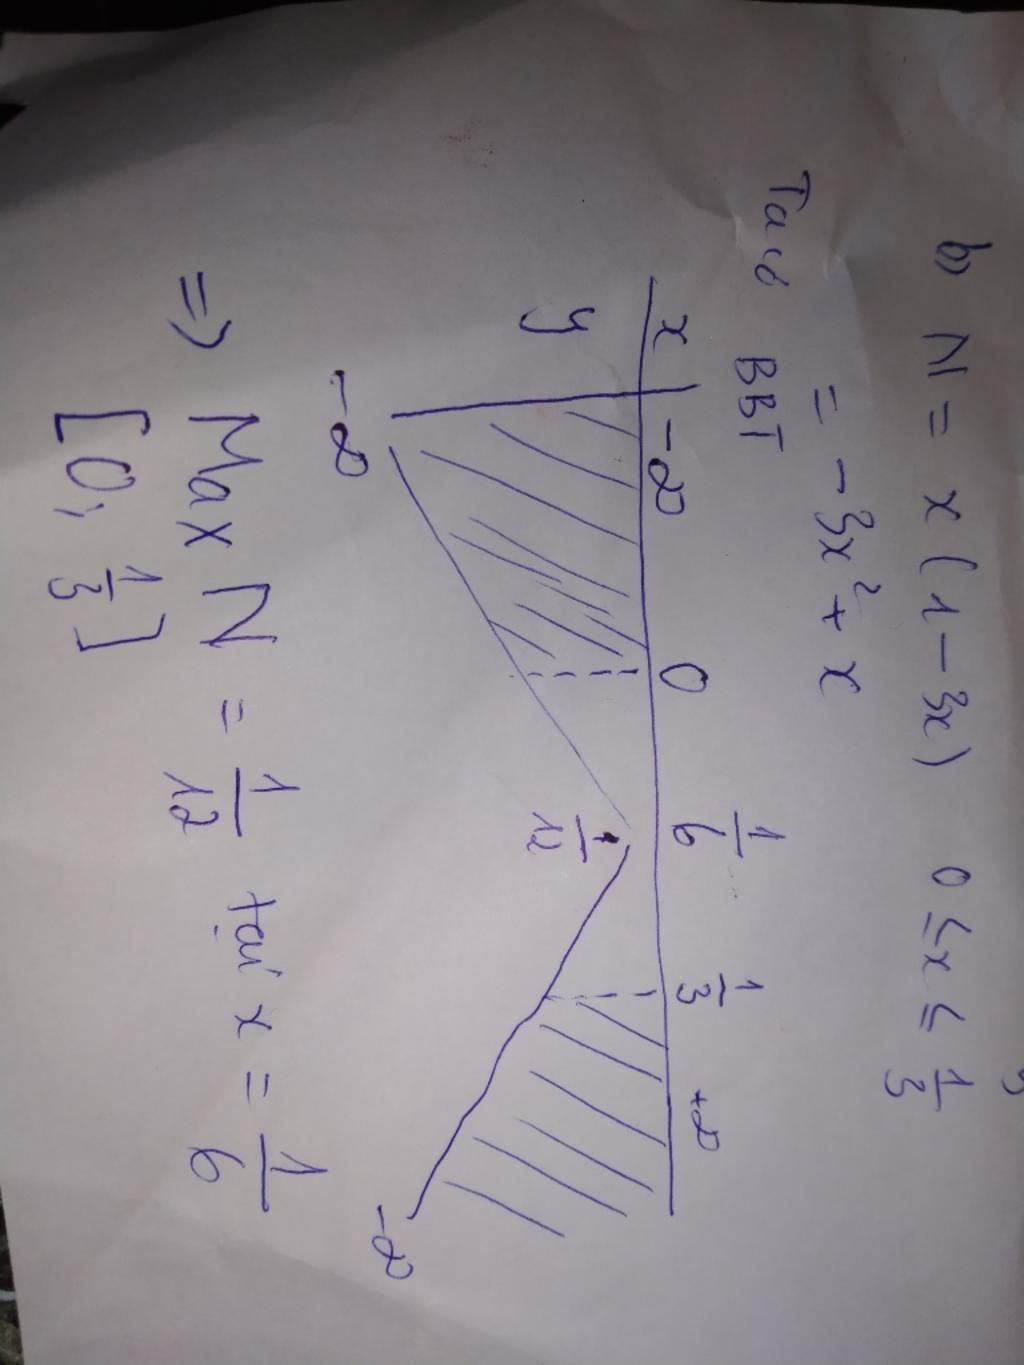 b) N = x(1-3x) 0 ≤ x ≤ 1/3
= -3x² + x
Ta có BBT
x -∞ 0 1/6 1/3 +∞
y -∞ 1/12 -∞
=> Max N = 1/12 tại x = 1/6
[0; 1/3]